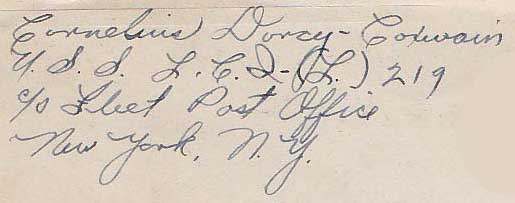 Cornelius Dorcy - Coxwain
U. S. S. L. C. I - (L.) 219
c/o Fleet Post Office
New York, N. Y.